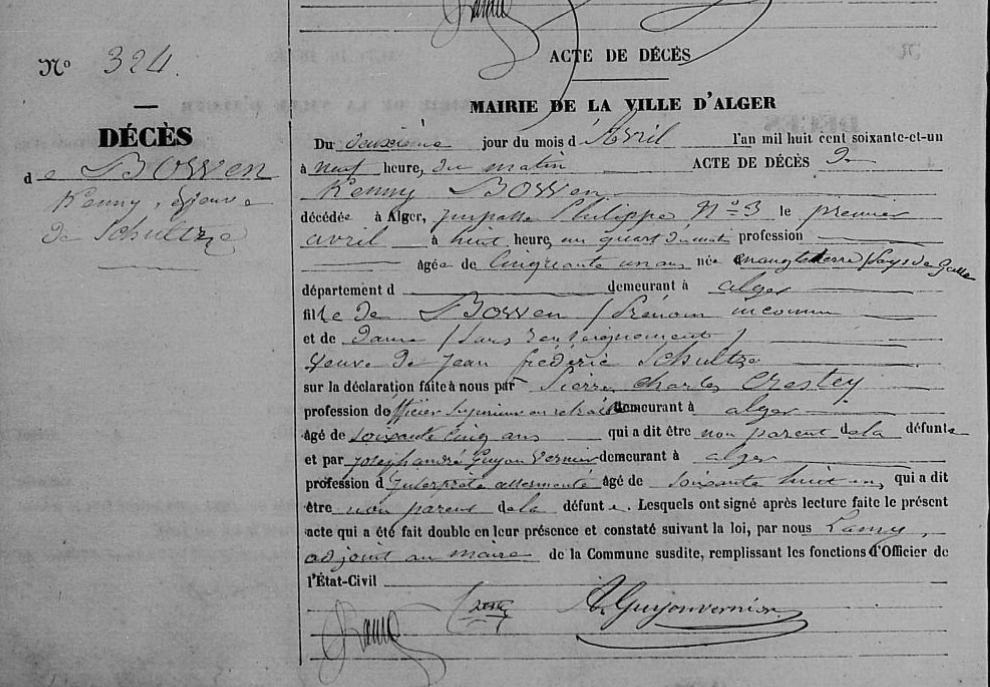 Nº 324.
DÉCÈS
de Bowen
Kenny, épouse
de Schultze
ACTE DE DÉCÈS
MAIRIE DE LA VILLE D'ALGER
Du deuxième jour du mois d'Avril l'an mil huit cent soixante-et-un
à neuf heure, du matin ACTE DE DÉCÈS D
Kenny Bowen
décédée à Alger, Philippe Nº 3 le premier
avril à huit heure, un quart du matin profession
âgée de Cinquante un ans née en angleterre (Pays de Galle
département d demeurant à alger
fille de Bowen (Prénom inconnu
et de Dame (Sans renseignements)
Veuve de Jean frédéric Schultze
sur la déclaration faite à nous par Pierre Charles Crestey
profession de officier Supérieur en retraite demeurant à alger
âgé de soixante cinq ans qui a dit être non parent de la défunte
et par Joseph andré Guyon Vernier demeurant à alger
profession d'interprète assermenté âgé de soixante huit ans, qui a dit
être non parent de la défunte. Lesquels ont signé après lecture faite le présent
acte qui a été fait double en leur présence et constaté suivant la loi, par nous Lamy,
adjoint au maire de la Commune susdite, remplissant les fonctions d'Officier de
l'État-Civil
A. Guyonvernier